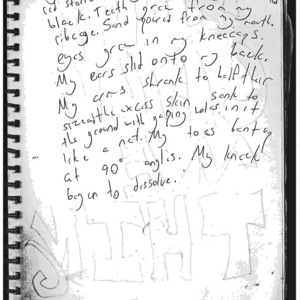 black. Teeth grew from my
ribcage. Sand poured from my mouth.
eyes grew in my kneecaps.
My ears slid onto my back.
My arms shrank to half their
size and the excess skin sank to
the ground with gaping holes in it
like a net. My toes bent by
at 90° angles. My knack
began to dissolve.
NIGHT